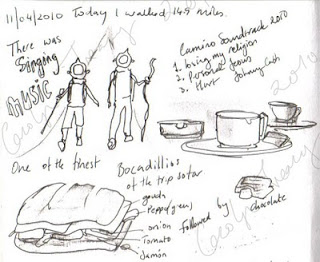 11/04/2010 Today I walked 14.5 miles.
There was
Singing
MUSIC
Camino Soundtrack 2010
1. losing my religion
2. Personal Jesus
3. Hurt Johnny Cash
One of the finest
Bocadillios
of the trip so far
gouda
Pepper(green)
onion
Tomato
Jamon
followed by
chocolate
2010